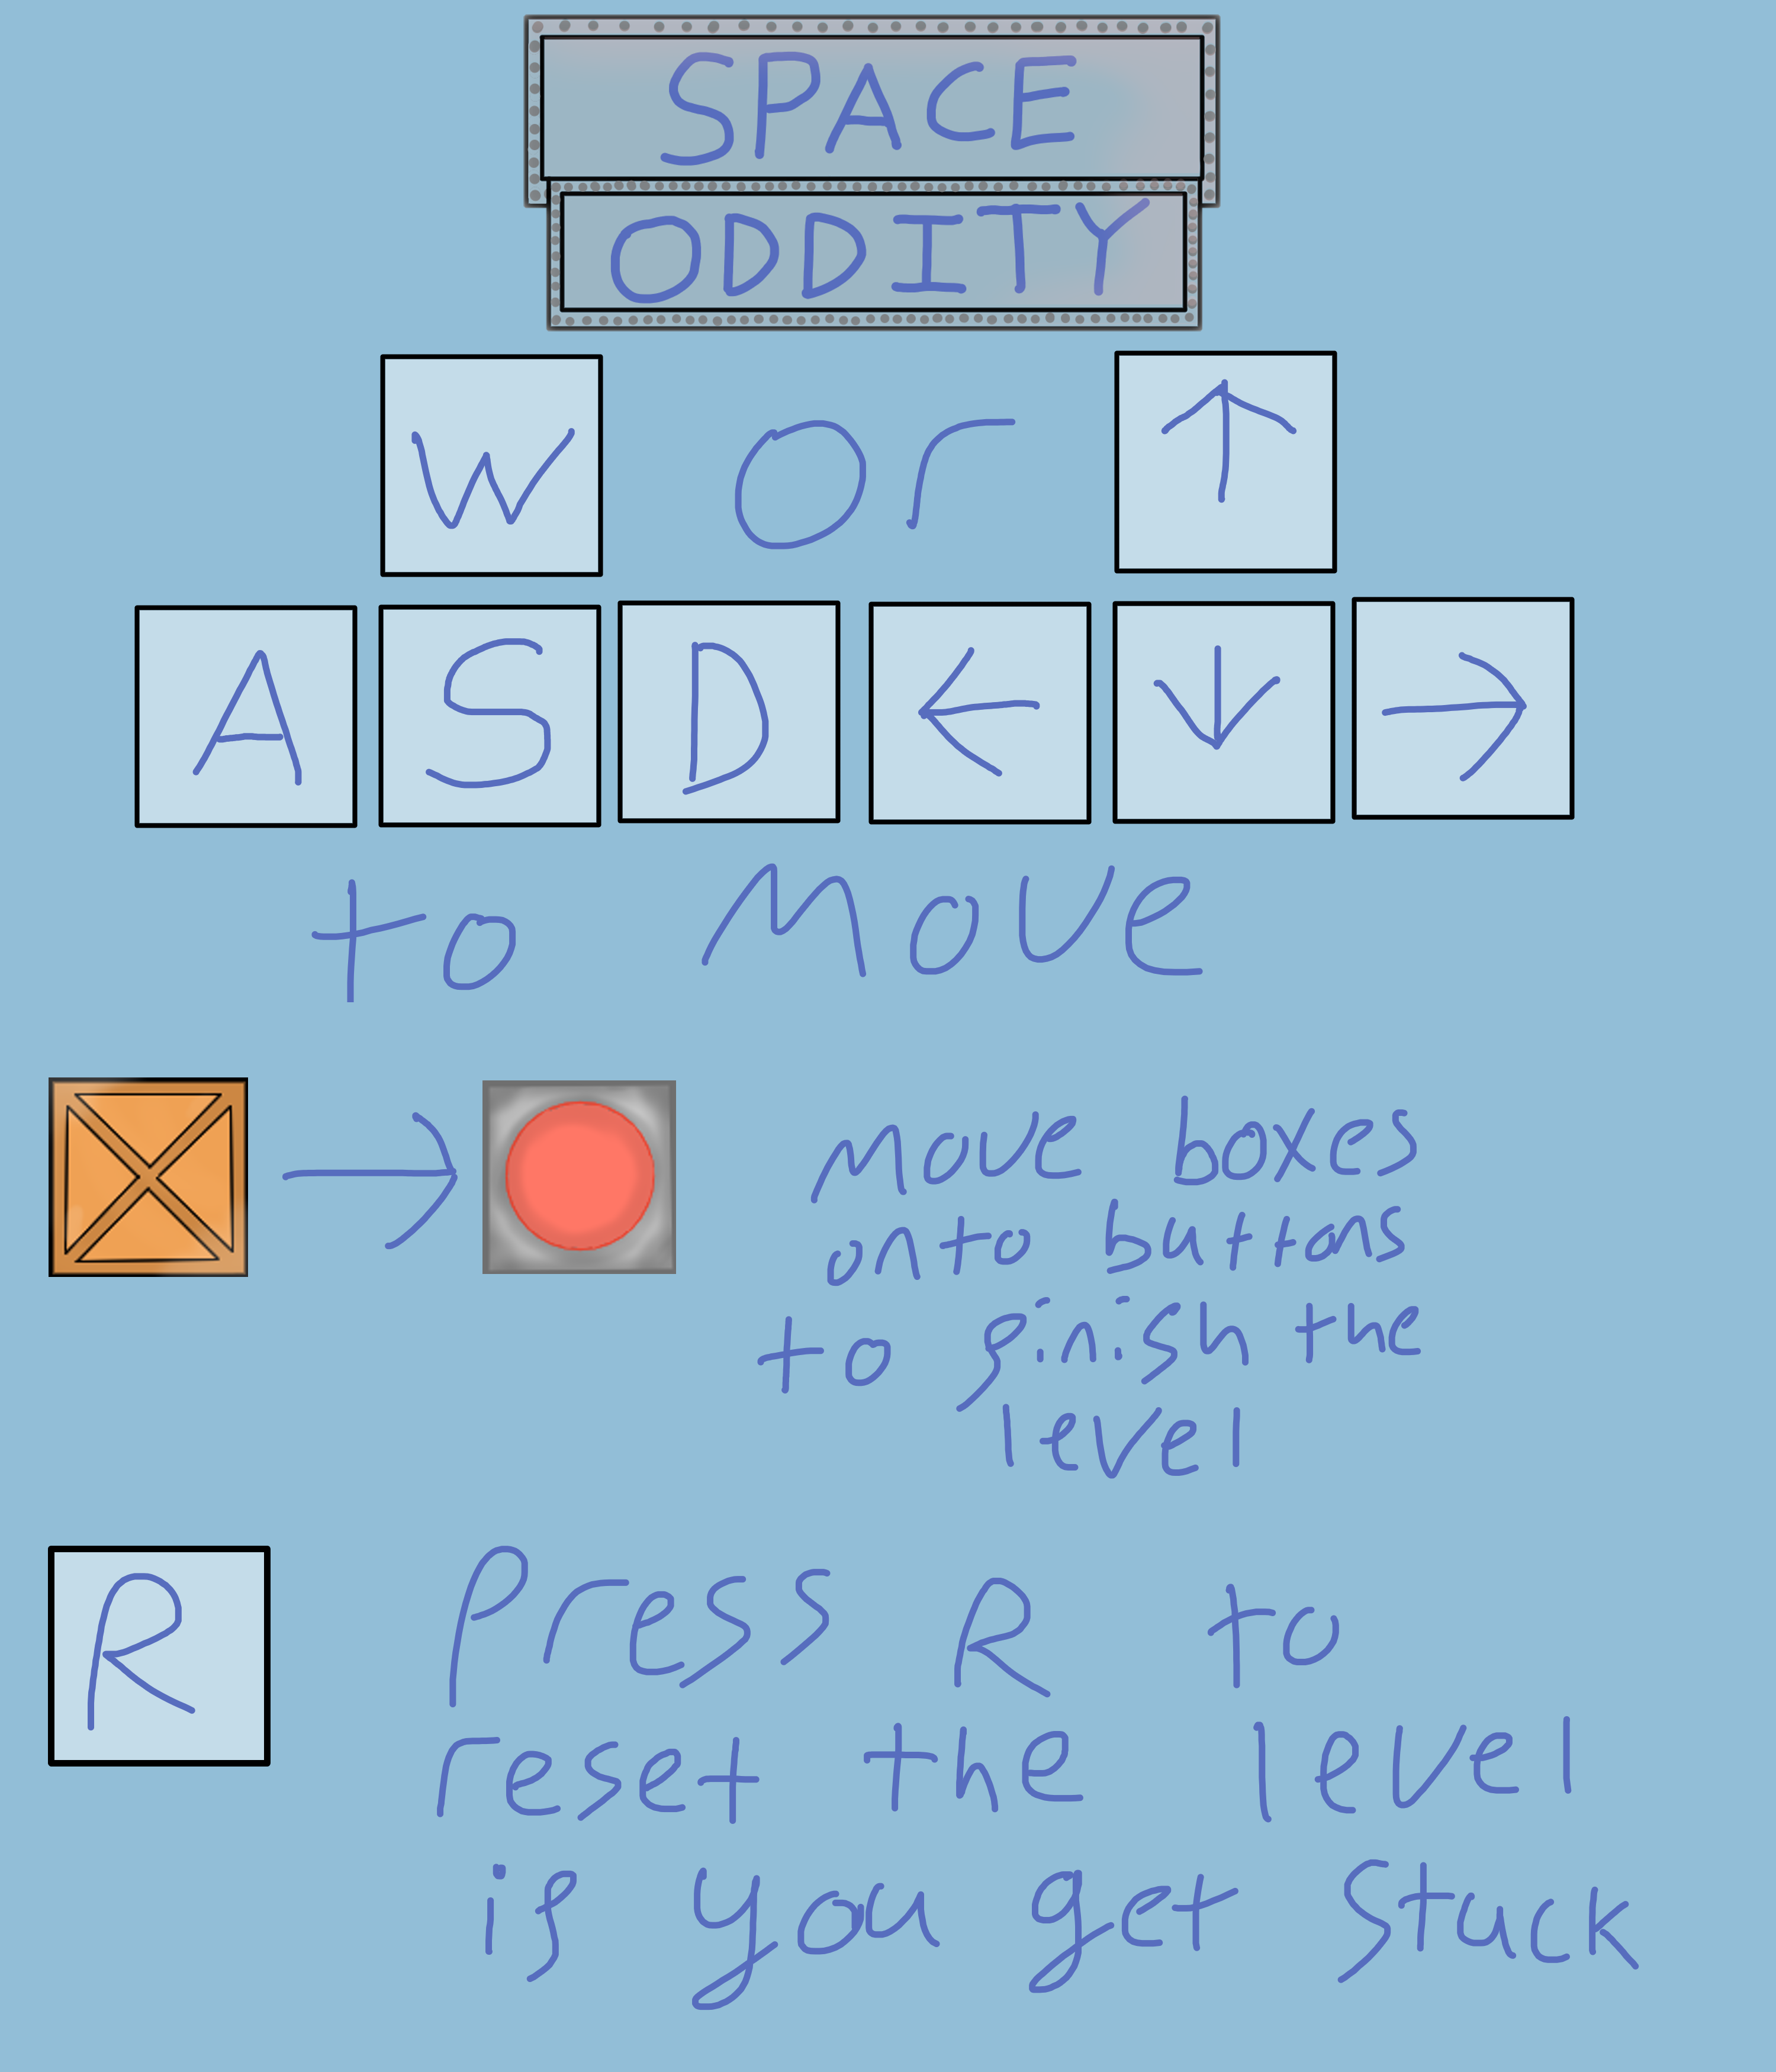 SPACE
ODDITY
W or ↑
A S D ← ↓ →
to Move
Move boxes
onto buttons
to finish the
level
R Press R to
reset the level
if you get stuck